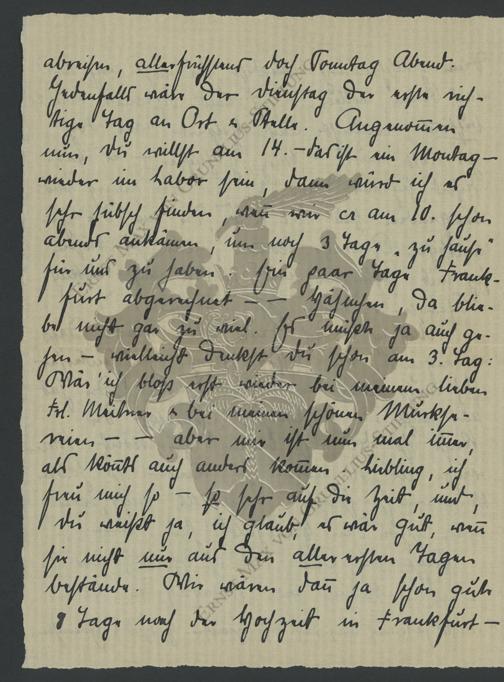 abreisen, allerfrühstens doch Sonntag Abend.
Jedenfalls wäre der Dienstag der erste rich-
tige Tag an Ort u Stelle. Angenommen
nun, du willst am 14. – das ist ein Montag –
wieder im Labor sein, dann würd ich es
sehr hübsch finden, wenn wir ca am 10. schon
abends ankämen, um noch 3 Tage „zu Hause"
für uns zu haben. Ein paar Tage Frank-
furt abgerechnet – – Hähnchen, da blie-
be nicht gar zu viel. Es müsste ja auch ge-
hen – vielleicht denkst du schon am 3. Tag:
Wär' ich bloss erst wieder bei meinem lieben
Frl. Meitner u bei meinen schönen Murkse-
reien – – aber mir ist nun mal immer,
als könnts auch anders kommen. Liebling, ich
freu mich so – so sehr auf die Zeit, und,
du weißt ja, ich glaub, es wär gut, wenn
sie nicht nur aus den allerersten Tagen
bestände. Wir wären dann ja schon gute
8 Tage nach der Hochzeit in Frankfurt –